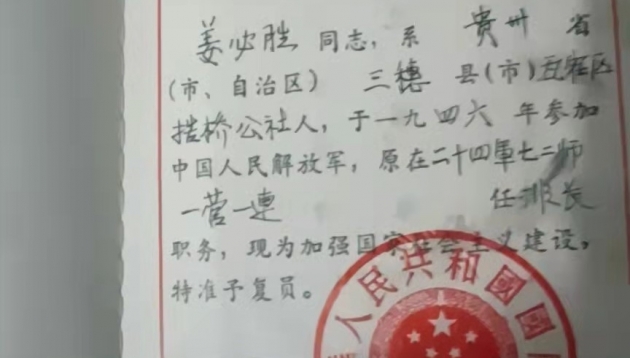 姜必胜 同志，系 贵州 省
（市、自治区） 三穗 县（市）五在区
桥公社人，于一九四六 年参加
中国人民解放军，原在二十四軍七二师
一营一連 任排长
职务，现为加强国家社会主义建设，
特准予复员。
人民共和國國